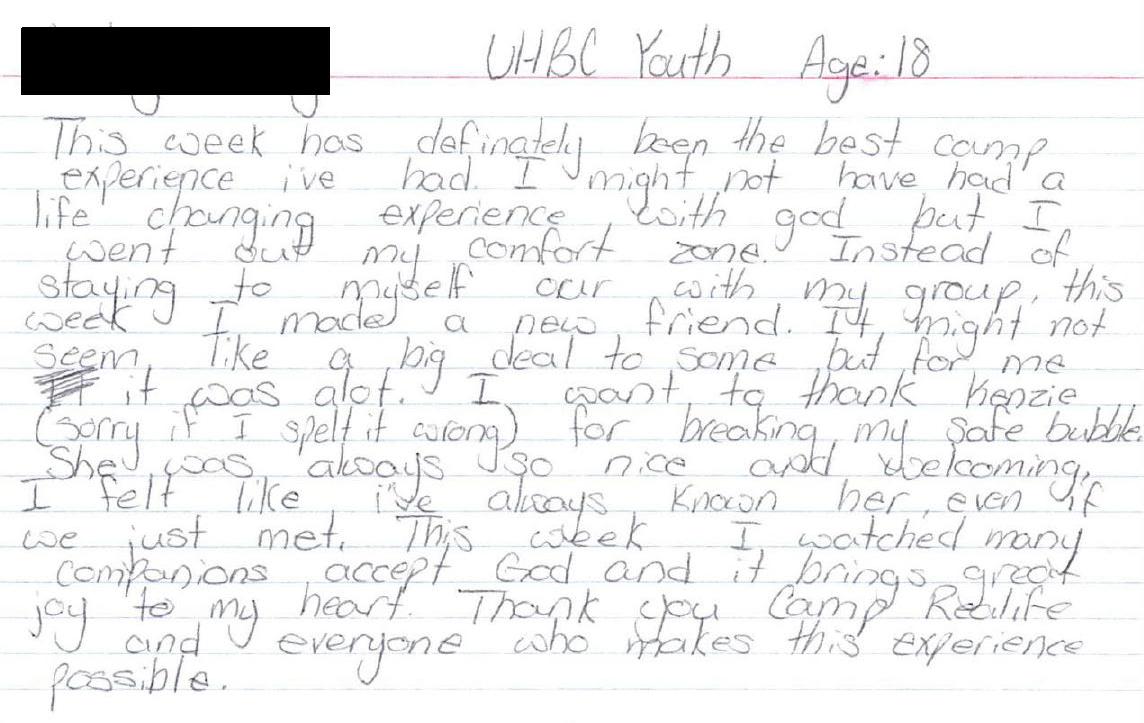 UHBC Youth Age: 18
This week has definately been the best camp
experience i've had. I might not have had a
life changing experience with god but I
went out my comfort zone. Instead of
staying to myself our with my group, this
week I made a new friend. It might not
seem like a big deal to some but for me
it was alot. I want to thank Kenzie
(sorry if I spelt it wrong) for breaking my safe bubble.
She was always so nice and welcoming,
I felt like i've always known her, even if
we just met. This week I watched many
companions accept God and it brings great
joy to my heart. Thank you Camp Realife
and everyone who makes this experience
possible.